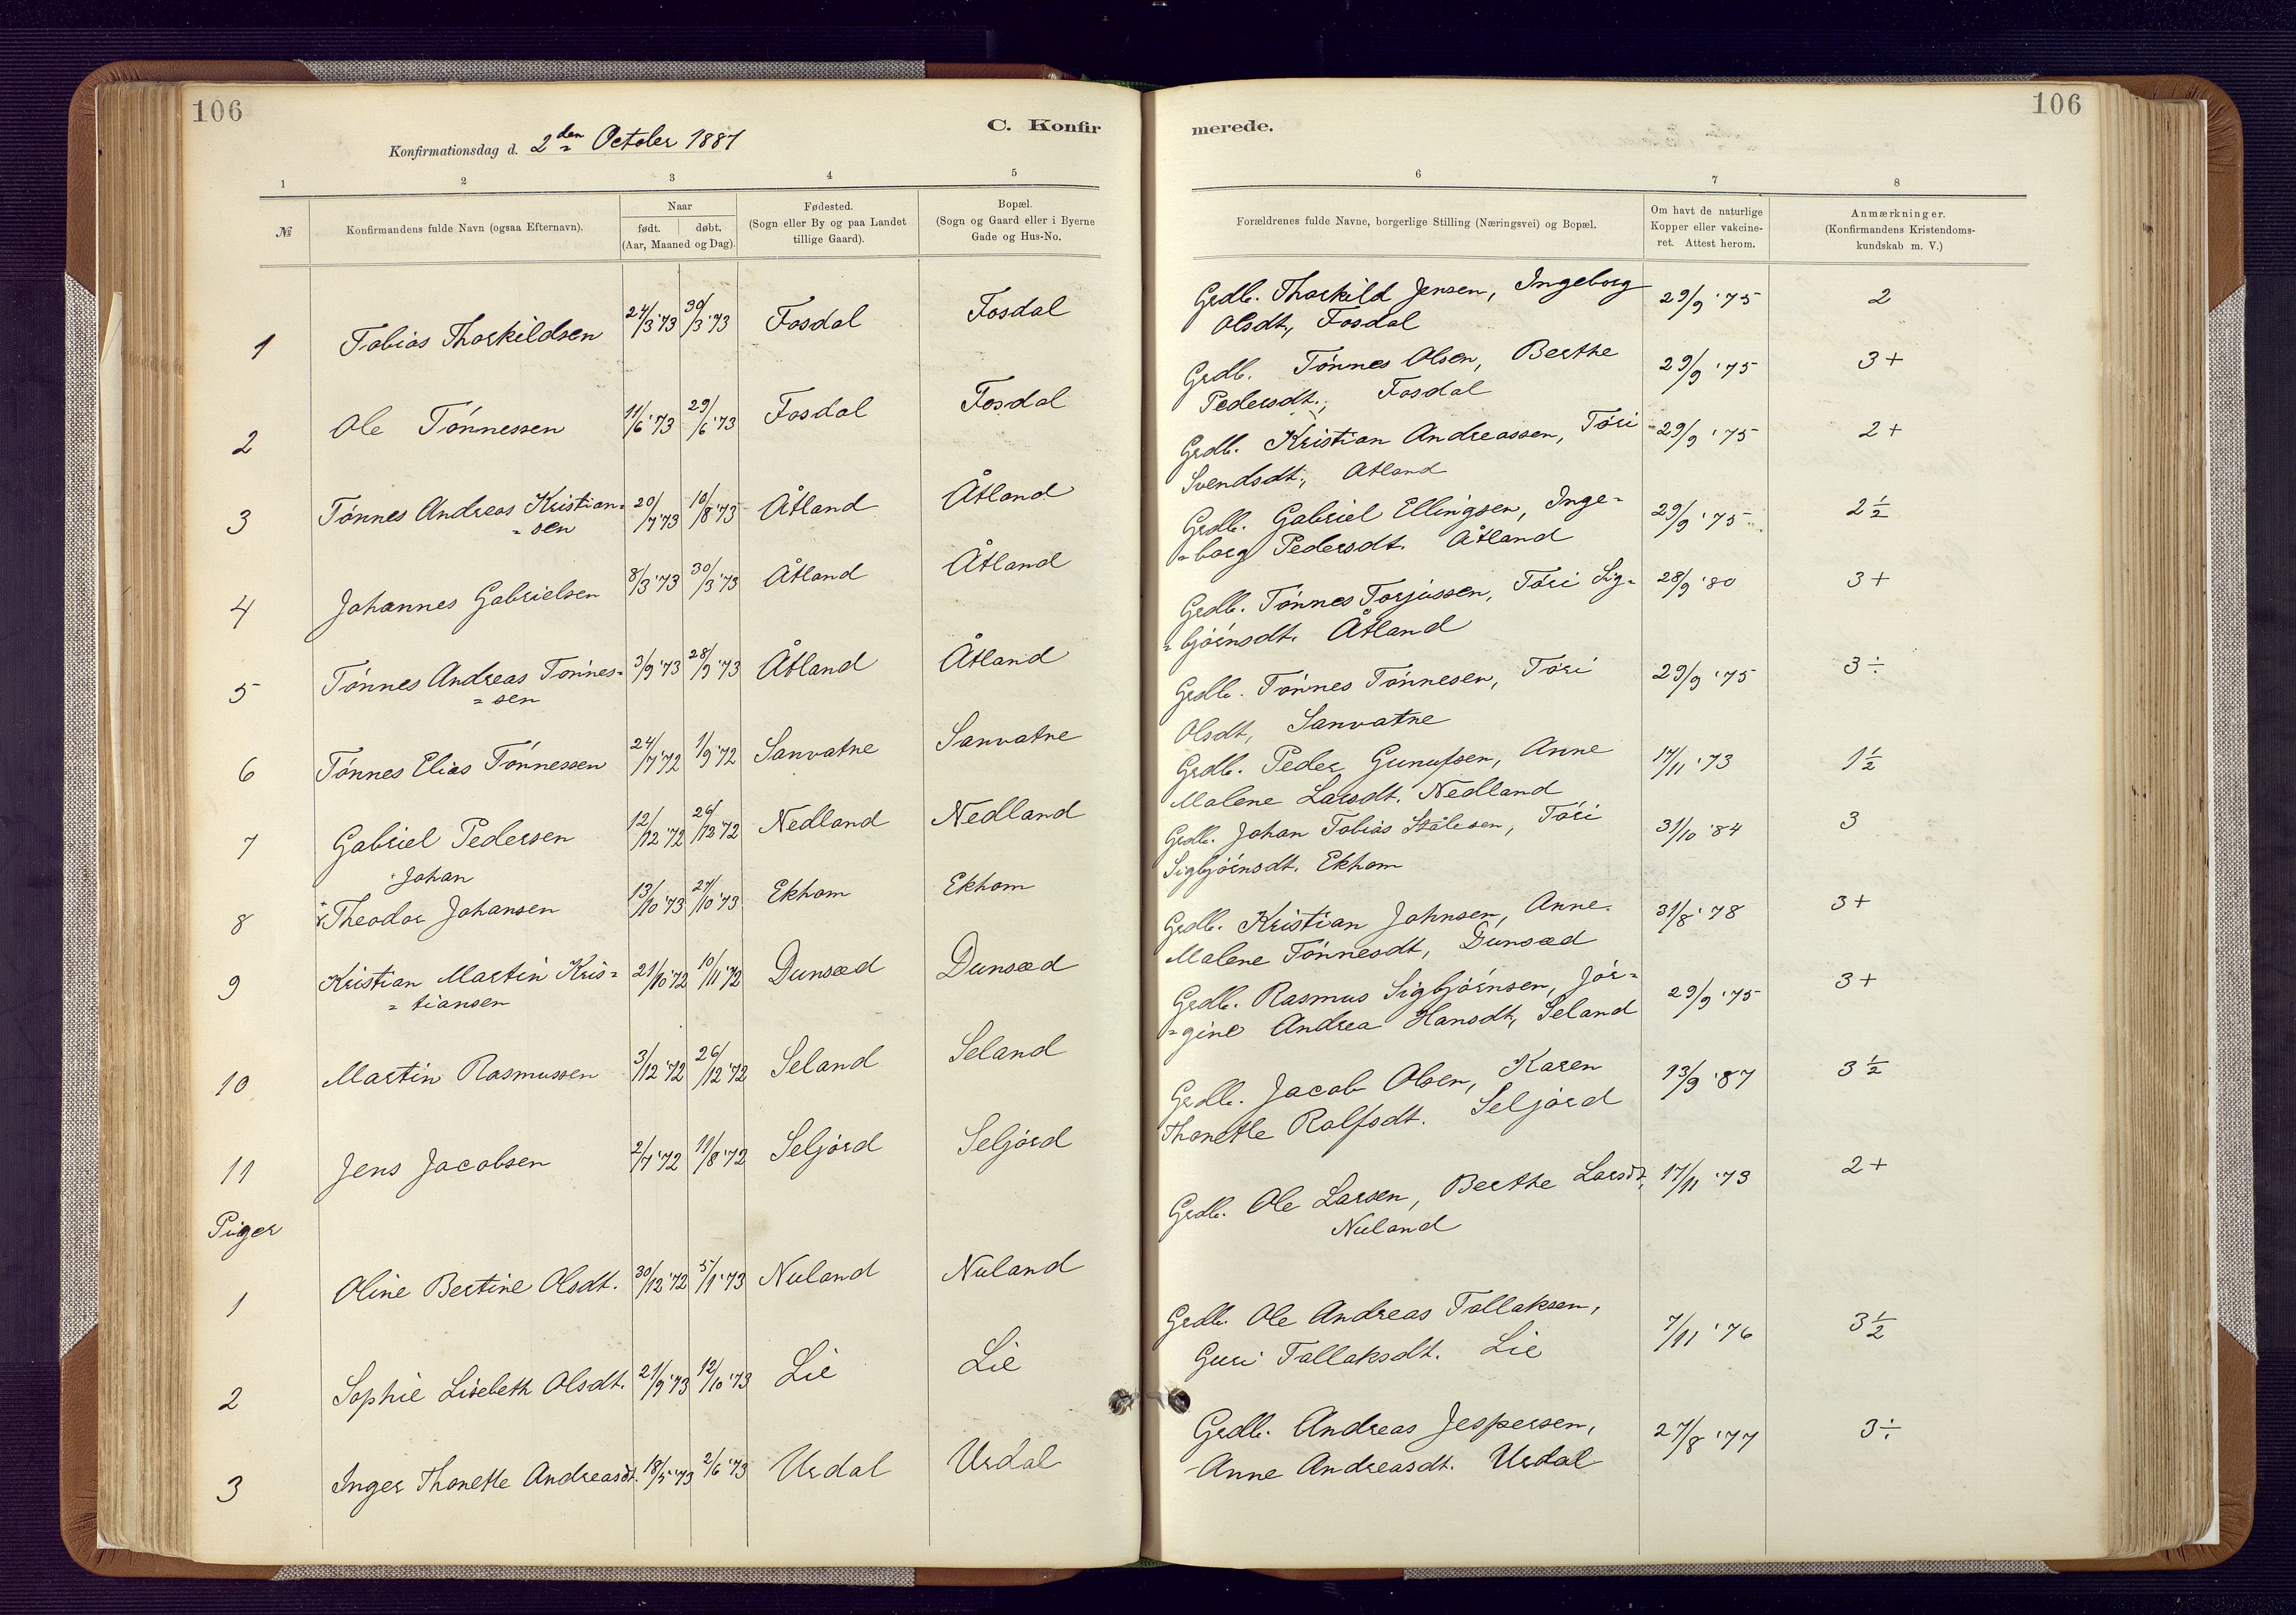 106
C. Konfir
merede.
106
Konfirmationsdag d. 2den October 1887
1 2 3 4 5
6 7 8
№ Konfirmandens fulde Navn (ogsaa Efternavn).
Naar
født. døbt.
(Aar, Maaned og Dag).
Fødested.
(Sogn eller By og paa Landet
tillige Gaard).
Bopæl.
(Sogn og Gaard eller i Byerne
Gade og Hus-No.
Forældrenes fulde Navne, borgerlige Stilling (Næringsvei) og Bopæl.
Om havt de naturlige
Kopper eller vakcine-
ret. Attest herom.
Anmærkninger.
(Konfirmandens Kristendoms-
kundskab m. V.)
1 Tobias Thorkildsen 24/3 '73 30/3 '73 Fosdal Fosdal
Grdb. Thorkild Jensen, Ingeborg 29/9 '75 2
Olsdt., Fosdal
2 Ole Tønnessen 11/6 '73 29/6 '73 Fosdal Fosdal
Grdb. Tønnes Olsen, Berthe 29/9 '75 3+
Pedersdt., Fosdal
3 Tønnes Andreas Kristian= 20/7 '73 10/8 '73 Åtland Åtland
=sen
Grdb. Kristian Andreassen, Tøri 29/9 '75 2+
Svendsdt., Åtland
4 Johannes Gabrielsen 8/3 '73 30/3 '73 Åtland Åtland
Grdb. Gabriel Ellingsen, Inge= 29/9 '75 2½
=borg Pedersdt. Åtland
5 Tønnes Andreas Tønnes= 3/9 '73 28/9 '73 Åtland Åtland
=sen
Grdb. Tønnes Torjussen, Tøri Sig= 28/9 '80 3+
=bjørnsdt. Åtland
6 Tønnes Elias Tønnessen 24/7 '72 1/9 '72 Sanvatne Sanvatne
Grdb. Tønnes Tønnesen, Tøri 29/9 '75 3÷
Olsdt, Sanvatne
7 Gabriel Pedersen 12/12 '72 26/12 '72 Nedland Nedland
Grdb. Peder Gunufsen, Anne 17/11 '73 1½
Malene Larsdt. Nedland
Johan
8 Theodor Johansen 13/10 '73 27/10 '73 Ekhom Ekhom
Grdb. Johan Tobias Stålesen, Tøri 31/10 '84 3
Sigbjørnsdt. Ekhom
9 Kristian Martin Kris= 21/10 '72 10/11 '72 Dunsæd Dunsæd
=tiansen
Grdb. Kristian Johnsen, Anne 31/8 '78 3+
Malene Tønnesdt, Dunsæd
10 Martin Rasmussen 3/12 '72 26/12 '72 Seland Seland
Grdb. Rasmus Sigbjørnsen, Jør= 29/9 '75 3+
=gine Andrea Hansdt, Seland
11 Jens Jacobsen 2/7 '72 11/8 '72 Seljord Seljord
Grdb. Jacob Olsen, Karen 13/9 '87 3½
Thonette Rolfsdt. Seljord
Piger
1 Oline Bertine Olsdt. 30/12 '72 5/1 '73 Nuland Nuland
Grdb. Ole Larsen, Berthe Larsdt, 17/11 '73 2+
Nuland
2 Sophie Lisebeth Olsdt. 21/9 '73 12/10 '73 Lie Lie
Grdb. Ole Andreas Tallaksen, 7/11 '76 3½
Guri Tallaksdt. Lie
3 Inger Thonette Andreasdt. 18/5 '73 2/6 '73 Urdal Urdal
Grdb. Andreas Jespersen, 27/8 '77 3÷
Anne Andreasdt. Urdal